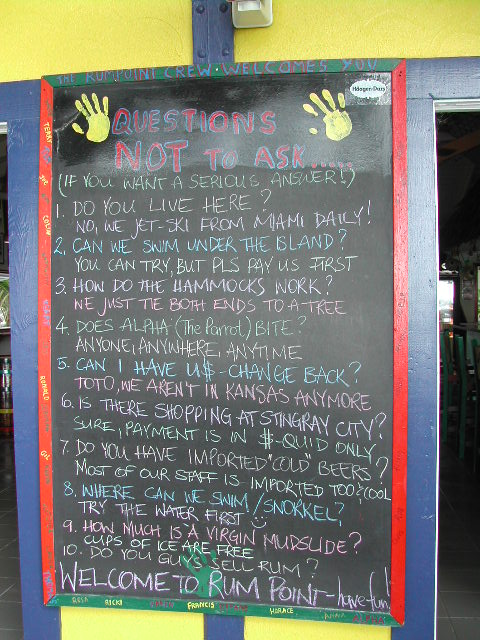 THE RUMPOINT CREW WELCOMES YOU
Häagen-Dazs
QUESTIONS
NOT TO ASK.....
(IF YOU WANT A SERIOUS, ANSWER!)
1. DO YOU LIVE HERE?
NO, WE JET-SKI FROM MIAMI DAILY!
2, CAN WE SWIM UNDER THE ISLAND?
YOU CAN TRY, BUT PLS PAY US FIRST
3. HOW DO THE HAMMOCKS WORK?
WE JUST TIE BOTH ENDS TO A-TREE
4. DOES ALPHA (The Parrot) BITE?
ANYONE, ANYWHERE, ANYTIME
5. CAN I HAVE U$-CHANGE BACK?
TOTO, WE AREN'T IN KANSAS ANYMORE
6. IS THERE SHOPPING AT STINGRAY CITY?
SURE, PAYMENT IS IN $-QUID ONLY
7. DO YOU HAVE IMPORTED "COLD" BEERS?
MOST OF OUR STAFF IS IMPORTED TOO, COOL
8. WHERE CAN WE SWIM/SNORKEL?
TRY THE WATER FIRST
9. HOW MUCH IS A VIRGIN MUDSLIDE?
CUPS OF ICE ARE FREE
10. DO YOU GUYS SELL RUM?
WELCOME TO RUM POINT-have fun!
ROSA RICKI FRANCIS HORACE